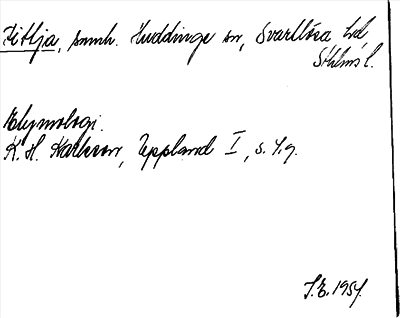 Fittja, smh. Huddinge sn, Svartlösa hd,
Sthlms l.
Etymologi.
K. H. Karlsson, Uppland I, s. 419.
S.E. 1954.